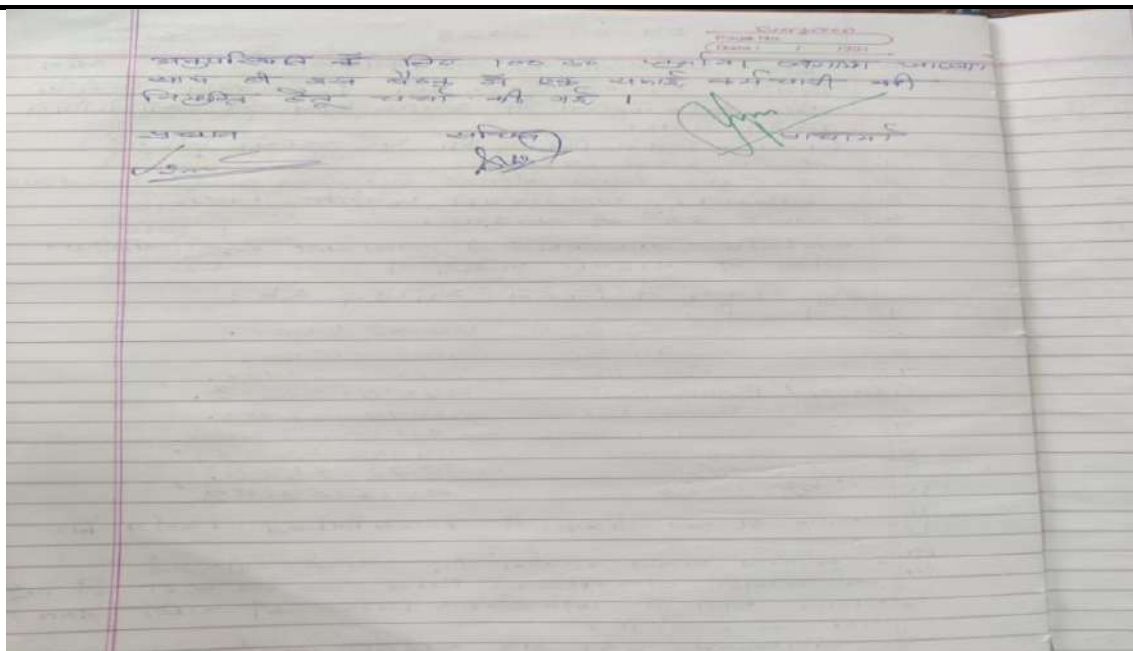 Page No.
Date : / /201
अनुपस्थिति के लिए 100 रू० जुर्माना लगाया जाएगा
साथ ही इस बैठक में एक सफाई कर्मचारी की
नियुक्ति हेतु चर्चा की गई ।
प्रधान सचिव प्राचार्या